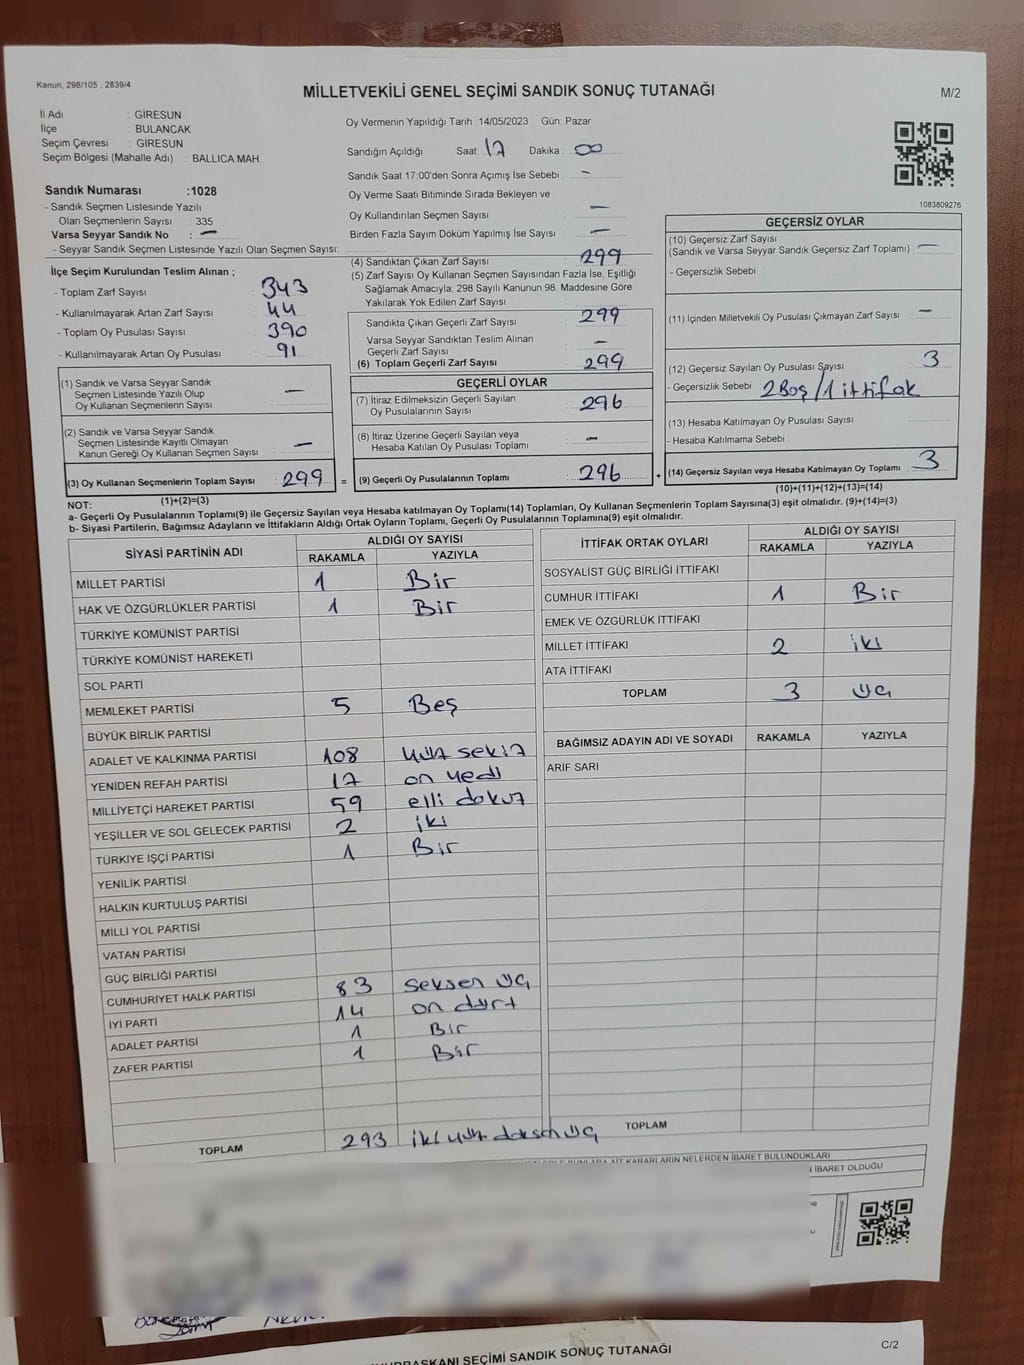 Kanun, 298/105 , 2839/4
MİLLETVEKİLİ GENEL SEÇİMİ SANDIK SONUÇ TUTANAĞI
M/2
İl Adı : GİRESUN
İlçe : BULANCAK
Seçim Çevresi : GİRESUN
Seçim Bölgesi (Mahalle Adı) : BALLICA MAH.
Oy Vermenin Yapıldığı Tarih :14/05/2023 Gün: Pazar
Sandığın Açıldığı Saat: 17 Dakika : 00
Sandık Saat 17:00'den Sonra Açımış İse Sebebi : -
Oy Verme Saati Bitiminde Sırada Bekleyen ve
Oy Kullandırılan Seçmen Sayısı : -
Birden Fazla Sayım Döküm Yapılmış İse Sayısı : -
1083809276
Sandık Numarası :1028
- Sandık Seçmen Listesinde Yazılı
Olan Seçmenlerin Sayısı : 335
Varsa Seyyar Sandık No : -
- Seyyar Sandık Seçmen Listesinde Yazılı Olan Seçmen Sayısı:
İlçe Seçim Kurulundan Teslim Alınan ;
- Toplam Zarf Sayısı : 343
- Kullanılmayarak Artan Zarf Sayısı : 44
- Toplam Oy Pusulası Sayısı : 390
- Kullanılmayarak Artan Oy Pusulası : 91
(1) Sandık ve Varsa Seyyar Sandık
Seçmen Listesinde Yazılı Olup
Oy Kullanan Seçmenlerin Sayısı : -
(2) Sandık ve Varsa Seyyar Sandık
Seçmen Listesinde Kayıtlı Olmayan
Kanun Gereği Oy Kullanan Seçmen Sayısı : -
(3) Oy Kullanan Seçmenlerin Toplam Sayısı : 299 =
(1)+(2)=(3)
(4) Sandıktan Çıkan Zarf Sayısı : 299
(5) Zarf Sayısı Oy Kullanan Seçmen Sayısından Fazla İse, Eşitliği
Sağlamak Amacıyla; 298 Sayılı Kanunun 98. Maddesine Göre
Yakılarak Yok Edilen Zarf Sayısı :
Sandıkta Çıkan Geçerli Zarf Sayısı : 299
Varsa Seyyar Sandıktan Teslim Alınan
Geçerli Zarf Sayısı : -
(6) Toplam Geçerli Zarf Sayısı : 299
GEÇERLİ OYLAR
(7) İtiraz Edilmeksizin Geçerli Sayılan
Oy Pusulalarının Sayısı : 296
(8) İtiraz Üzerine Geçerli Sayılan veya
Hesaba Katılan Oy Pusulası Toplamı : -
(9) Geçerli Oy Pusulalarının Toplamı : 296 +
GEÇERSİZ OYLAR
(10) Geçersiz Zarf Sayısı
(Sandık ve Varsa Seyyar Sandık Geçersiz Zarf Toplamı) : -
- Geçersizlik Sebebi
(11) İçinden Milletvekili Oy Pusulası Çıkmayan Zarf Sayısı : -
(12) Geçersiz Sayılan Oy Pusulası Sayısı : 3
- Geçersizlik Sebebi : 2 Boş / 1 ittifak
(13) Hesaba Katılmayan Oy Pusulası Sayısı :
- Hesaba Katılmama Sebebi :
(14) Geçersiz Sayılan veya Hesaba Katılmayan Oy Toplamı : 3
(10)+(11)+(12)+(13)=(14)
NOT:
a- Geçerli Oy Pusulalarının Toplamı(9) ile Geçersiz Sayılan veya Hesaba katılmayan Oy Toplamı(14) Toplamları, Oy Kullanan Seçmenlerin Toplam Sayısına(3) eşit olmalıdır. (9)+(14)=(3)
b- Siyasi Partilerin, Bağımsız Adayların ve İttifakların Aldığı Ortak Oyların Toplamı, Geçerli Oy Pusulalarının Toplamına(9) eşit olmalıdır.
SİYASİ PARTİNİN ADI ALDIĞI OY SAYISI
RAKAMLA YAZIYLA
MİLLET PARTİSİ 1 Bir
HAK VE ÖZGÜRLÜKLER PARTİSİ 1 Bir
TÜRKİYE KOMÜNİST PARTİSİ
TÜRKİYE KOMÜNİST HAREKETİ
SOL PARTİ
MEMLEKET PARTİSİ 5 Beş
BÜYÜK BİRLİK PARTİSİ
ADALET VE KALKINMA PARTİSİ 108 yüz sekiz
YENİDEN REFAH PARTİSİ 17 on yedi
MİLLİYETÇİ HAREKET PARTİSİ 59 elli dokuz
YEŞİLLER VE SOL GELECEK PARTİSİ 2 iki
TÜRKİYE İŞÇİ PARTİSİ 1 Bir
YENİLİK PARTİSİ
HALKIN KURTULUŞ PARTİSİ
MİLLİ YOL PARTİSİ
VATAN PARTİSİ
GÜÇ BİRLİĞİ PARTİSİ
CUMHURİYET HALK PARTİSİ 83 seksen üç
İYİ PARTİ 14 on dört
ADALET PARTİSİ 1 Bir
ZAFER PARTİSİ 1 Bir
TOPLAM 293 iki yüz doksan üç
İTTİFAK ORTAK OYLARI ALDIĞI OY SAYISI
RAKAMLA YAZIYLA
SOSYALİST GÜÇ BİRLİĞİ İTTİFAKI
CUMHUR İTTİFAKI 1 Bir
EMEK VE ÖZGÜRLÜK İTTİFAKI
MİLLET İTTİFAKI 2 iki
ATA İTTİFAKI
TOPLAM 3 üç
BAĞIMSIZ ADAYIN ADI VE SOYADI RAKAMLA YAZIYLA
ARİF SARI
TOPLAM
KARARLARIN NELERDEN İBARET BULUNDUKLARI
İBARET OLDUĞU
SEÇİMİ SANDIK SONUÇ TUTANAĞI
C/2